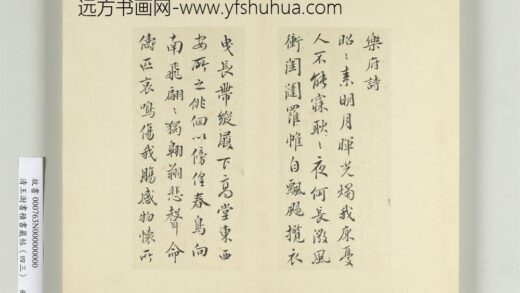 远方书画网-www.yfshuhua.com
樂府詩
昭〻素明月暉光燭我床憂
人不能寐耿〻夜何長微風
衝閨闥羅帷自飄颺攬衣
曳長帶縰履下高堂東西
安所之俳佪以傍徨春鳥向
南飛翩〻獨翱翔悲聲命
儔匹哀鳴傷我腸感物懷所
故書 000763N00000000
清王澍書積書巖帖（四三）